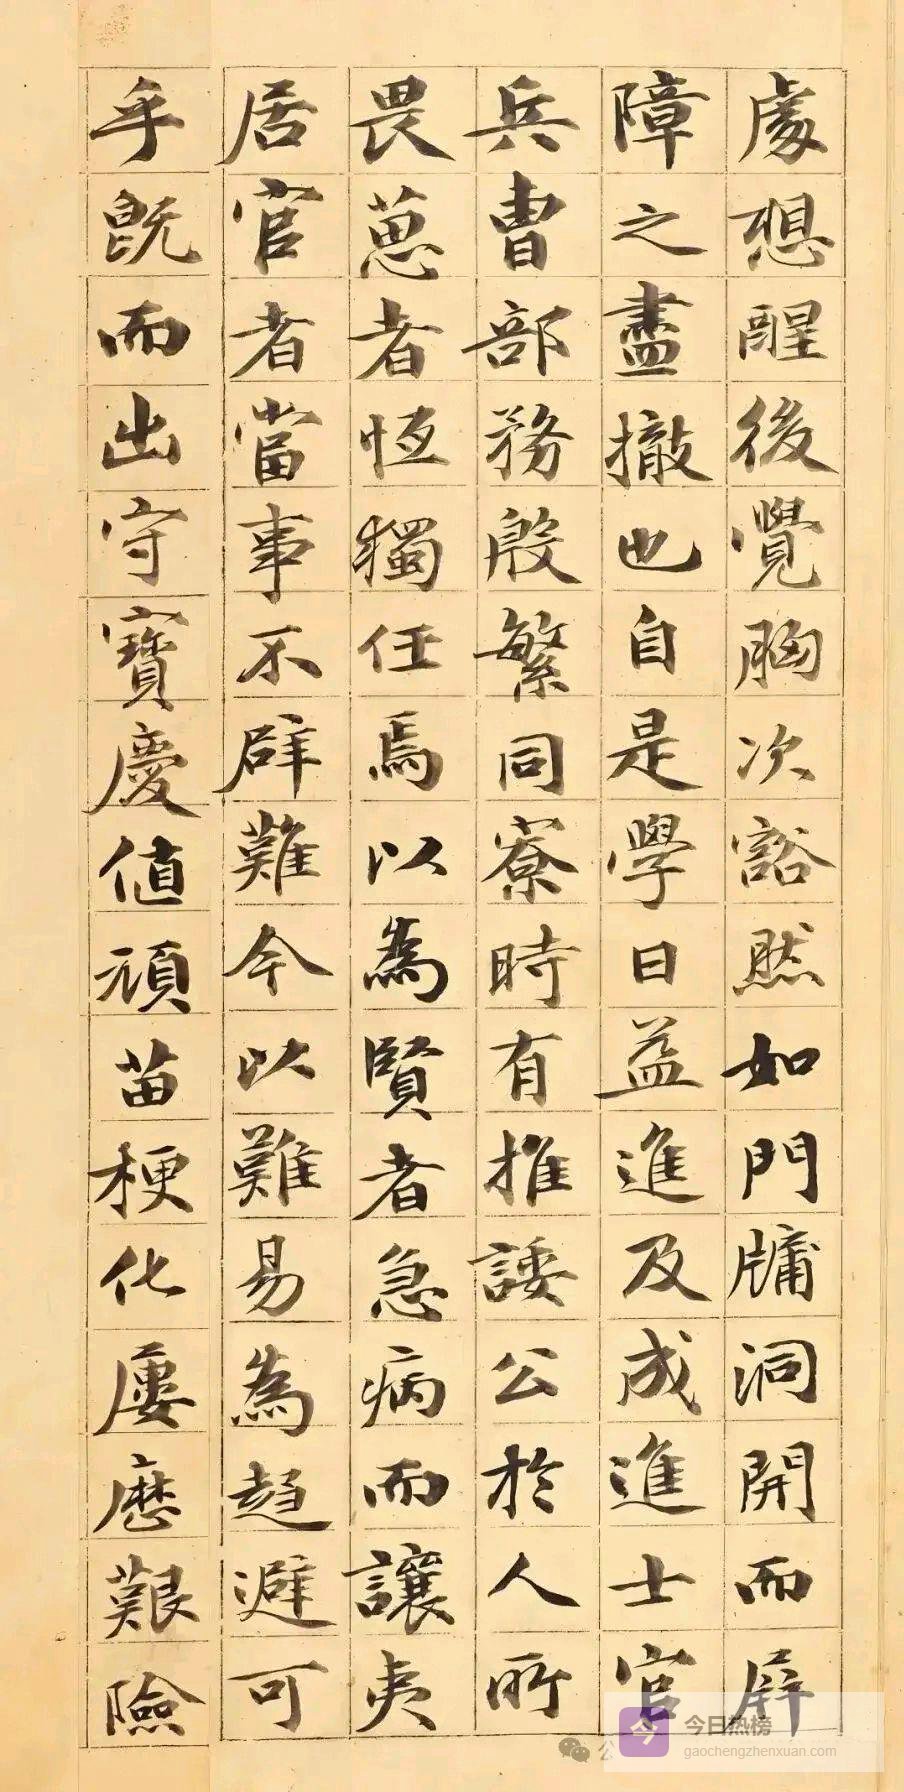 處想醒後覺胸次豁然如門牖洞開而屏
障之盡撤也自是學日益進及成進士官
兵曹部務殷繁同寮時有推諉公於人所
畏葸者恆獨任焉以為賢者急病而讓夷
居官者當事不辟難今以難易為趨避可
乎既而出守寶慶值頑苗梗化屢歷艱險
公
今日热榜
gaochengzhenxuan.com